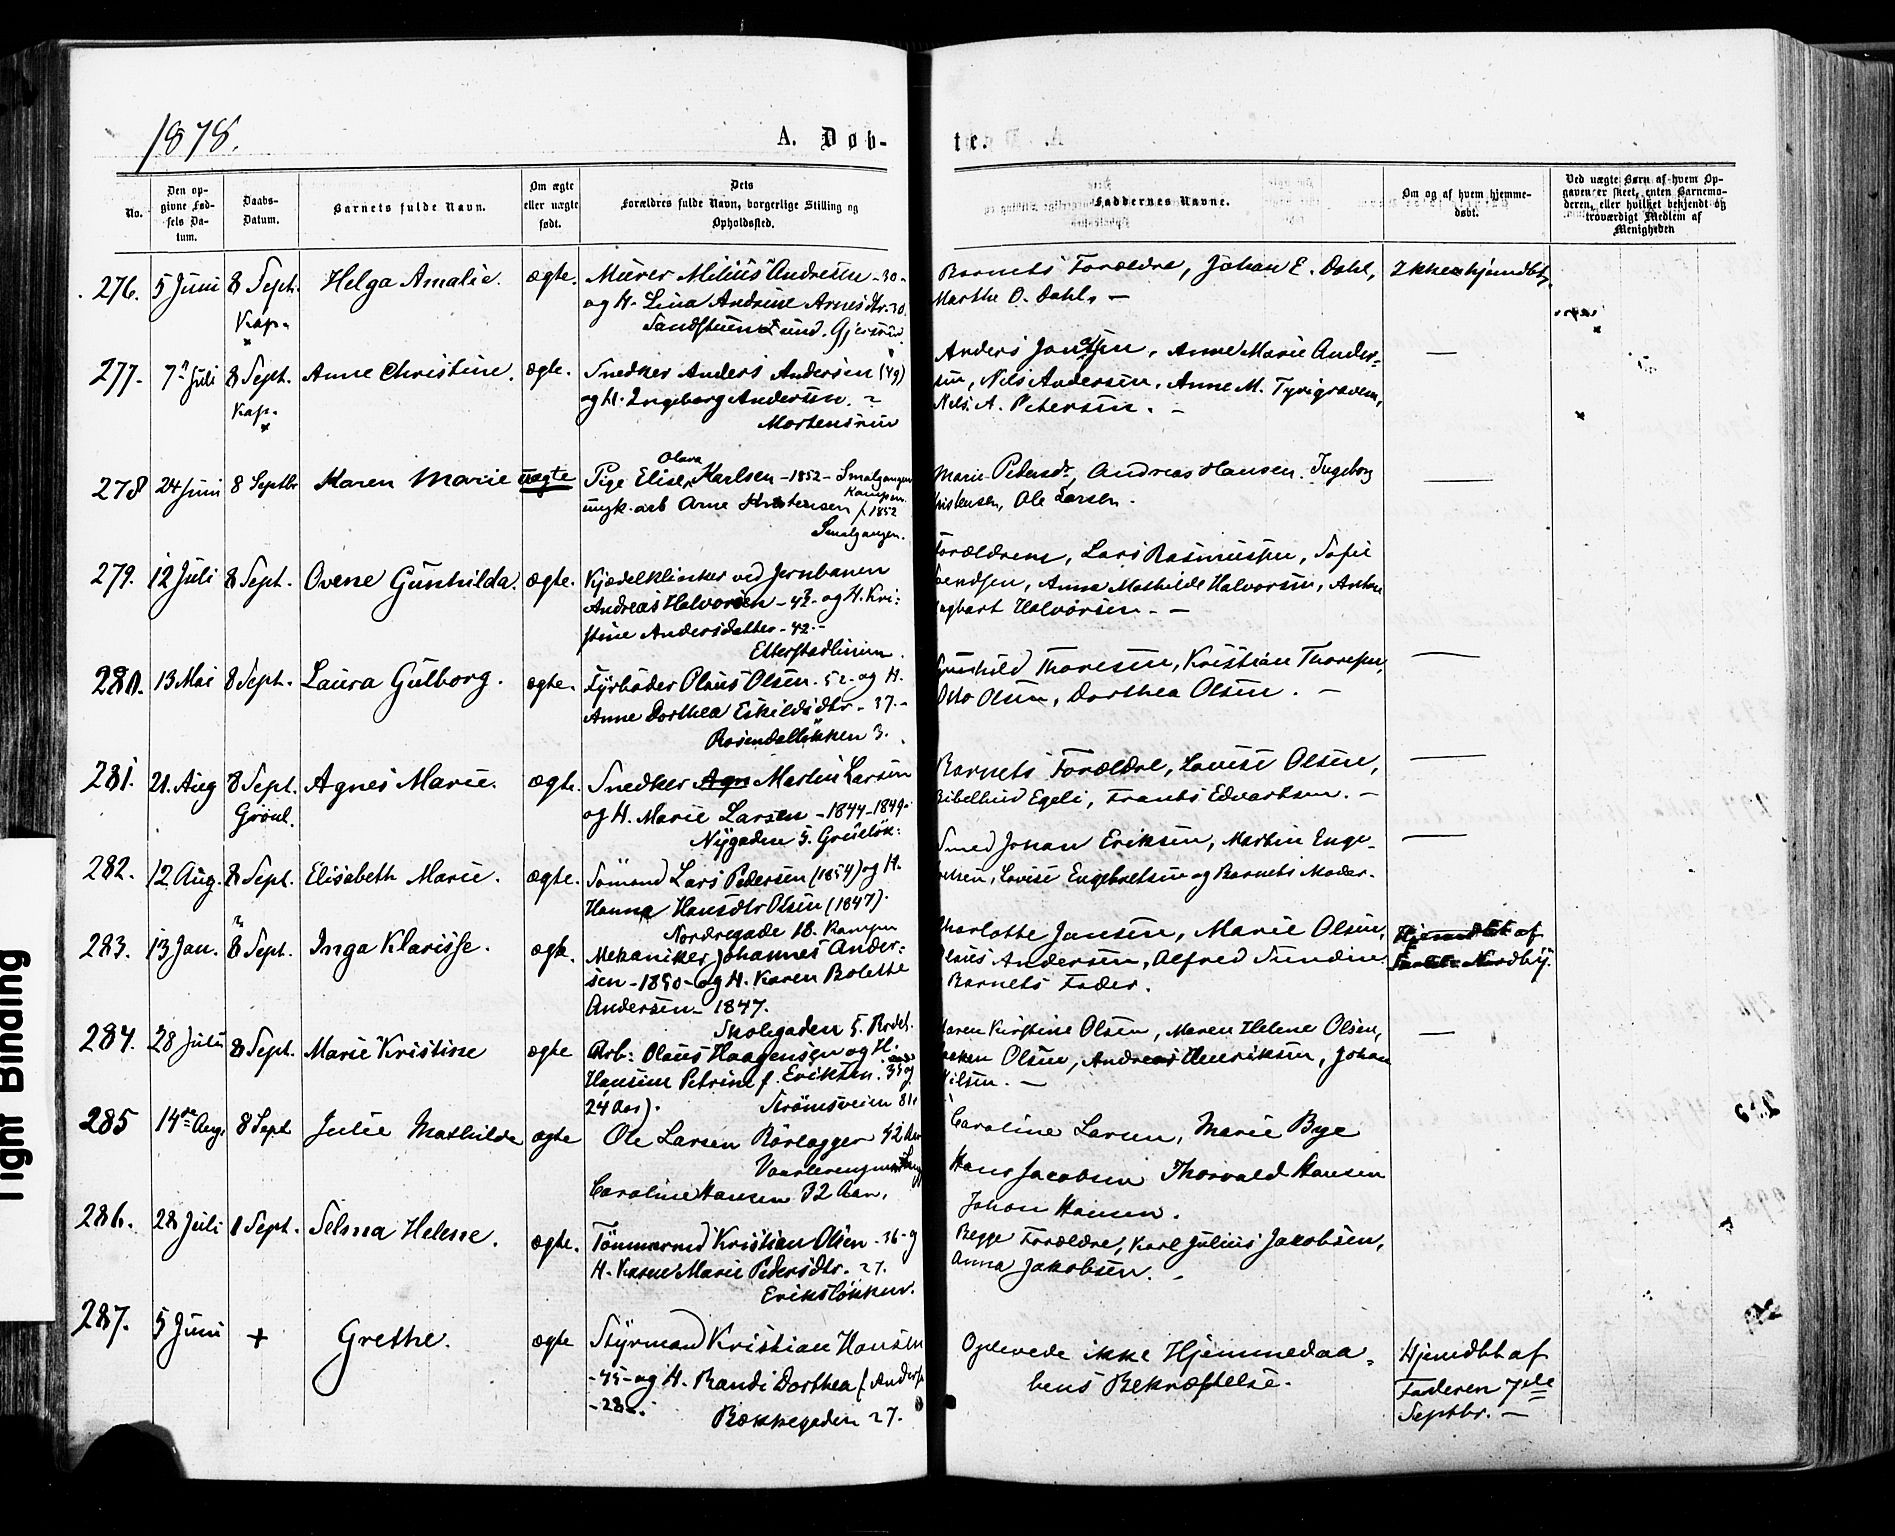 1878.
A. Døb-
te.
No.
Den op-
givne Fød-
sels Da-
tum.
Daabs-
Datum.
Barnets fulde Navn.
Om ægte
eller uægte
født.
Dets
Forældres fulde Navn, borgerlige Stilling og
Opholdssted.
Faddernes Navne.
Om og af hvem hjemme-
døbt.
Ved uægte Børn af hvem Op-
gaven er skeet, enten Barnemo-
deren, eller hvilket bekjendt og
troværdigt Medlem af
Menigheden
276. 5 Juni 8 Sept. Helga Amalie. ægte. Murer Milius Andresen - 30 -
Kap. og H. Lina Andrine Arnesdtr. 30.
Barnets Forældre, Johan E. Dahl, Ikke hjemdbt.
Marthe O. Dahl. —
277. 7 Juli 8 Sept. Anne Christine. ægte. Snedker Anders Andersen (49)
Kap. og H. Ingeborg Andersen.
Mortensrud
Anders Jansen, Anne Marie Ander- —
sen, Nils Andersen, Anne M. Tyrigraven,
Nils. A. Petersen. —
278 24 Juni 8 Septbr Karen Marie uægte Pige Elise Olava Karlsen - 1852 - Smalgangen
Kampen.
ungk. arb Arne Kristensen f. 1852
Smalgangen.
Marie Pedersdr, Andreas Hansen. Ingeborg —
istensen, Ole Larsen.
279. 12 Juli 8 Sept. Ovene Gunhilda. ægte. Kjedelklinker ved Jernbanen
Andreas Halvorsen - 42 - og H. Kri-
stine Andersdatter - 42 -
Etterstadlinien.
Forældrene, Lars Rasmussen, Sofie
endsen, Anna Mathilde Halvorsen,
Halvorsen. —
280. 13 Mai 8 Sept. Laura Gulborg. ægte. Fyrbøder Olaus Olsen. 52 - og H.
Anne Dorthea Eskildsdtr. 37. -
Rosendalløkken 3.
Gunhild Thoresen, Kristian Thoresen, —
Otto Olsen, Dorthea Olsen. —
281. 21. Aug 8 Sept. Agnes Marie. ægte. Snedker Agn Martin Larsen
Grønl. og H. Marie Larsen - 1844 - 1849 -
Nygaden 5. Grüneløk:
Barnets Forældre, Lovise Olsen, —
Egeli, Frants Edvartsen. —
282. 12 Aug. 8 Sept. Elisabeth Marie. ægte. Sømand Lars Pedersen (1854) og H.
Hanna Hansdtr Olsen (1847).
Nordregade 18. Kampen
Smed Johan Eriksen, Martin Enge- —
elsen, Lovise Engebretsen og Barnets Moder.
283. 13 Jan. 8 Sept. Inga Klarisse. ægte. Mekaniker Johannes Ander-
sen - 1850 - og H. Karen Bolette
Andersen - 1847.
Skolegaden 5. Rodel.
Charlotte Jansen, Marie Olsen, Hjemdbt af
Olaus Andersen, Alfred Sundin. Nordby.
Barnets Fader.
284. 28 Juli 8 Sept. Marie Kristine ægte Arb: Olaus Haagensen og H.
Hansine Petrine f. Eriksen. 35 og
24 Aar). Strømsveien 81.
Maren Kirstine Olsen, Maren Helene Olsen, —
Olsen, Andreas Henriksen, Johan
Nilsen. —
285 14de Aug. 8 Sept Julie Mathilde ægte Ole Larsen Rørlægger 42 Aar
Caroline Hansen 32 Aar.
Caroline Larsen, Marie Bye
Hans Jacobsen Thorvald Hansen
Johan Hansen.
286. 28 Juli 1 Sept. Selma Helene. ægte. Tømmermd Kristian Olsen - 36 - g
H. Karen Marie Pedersdtr. 27.
Eriksløkken.
Begge Forældre, Karl Julius Jakobsen,
Anna Jakobsen. —
287. 5 Juni + Grethe. ægte Styrmand Kristian Hansen
- 45 - og H. Randi Dorthea f. Anders
- 28 -. Bækkegaden 27.
Oplevede ikke Hjemmedaa- Hjemdbt af
bens Bekræftelse. Faderen 7de
Septbr. —
Tight Binding